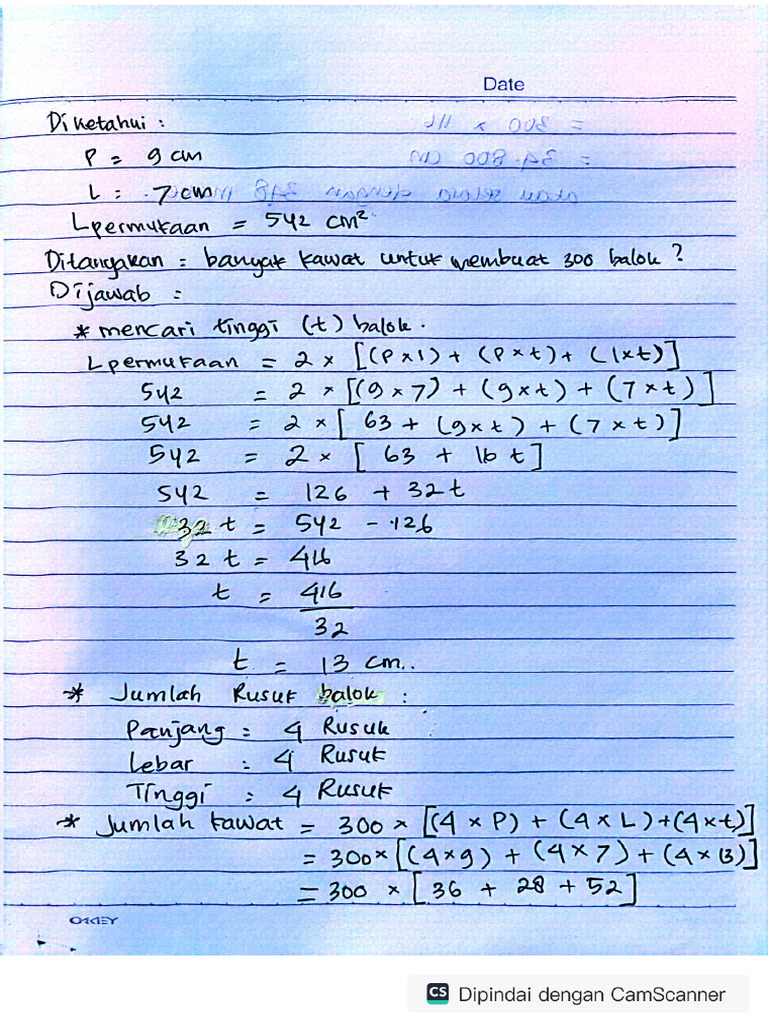 Date
Diketahui :
P = 9 cm
L : 7 cm
Lpermukaan = 542 cm²
Ditanyakan = banyak kawat untuk membuat 300 balok ?
Dijawab :
* mencari tinggi (t) balok.
Lpermukaan = 2 x [(P x l) + (P x t) + (l x t)]
542 = 2 x [(9 x 7) + (9 x t) + (7 x t)]
542 = 2 x [ 63 + (9 x t) + (7 x t)]
542 = 2 x [ 63 + 16 t]
542 = 126 + 32 t
32 t = 542 - 126
32 t = 416
t = 416
32
t = 13 cm..
* Jumlah Rusuk balok :
Panjang : 4 Rusuk
Lebar : 4 Rusuk
Tinggi : 4 Rusuk
* Jumlah kawat = 300 x [(4 x P) + (4 x L) + (4 x t)]
= 300 x [(4 x 9) + (4 x 7) + (4 x 13)]
= 300 x [ 36 + 28 + 52]
OKEY
CS Dipindai dengan CamScanner